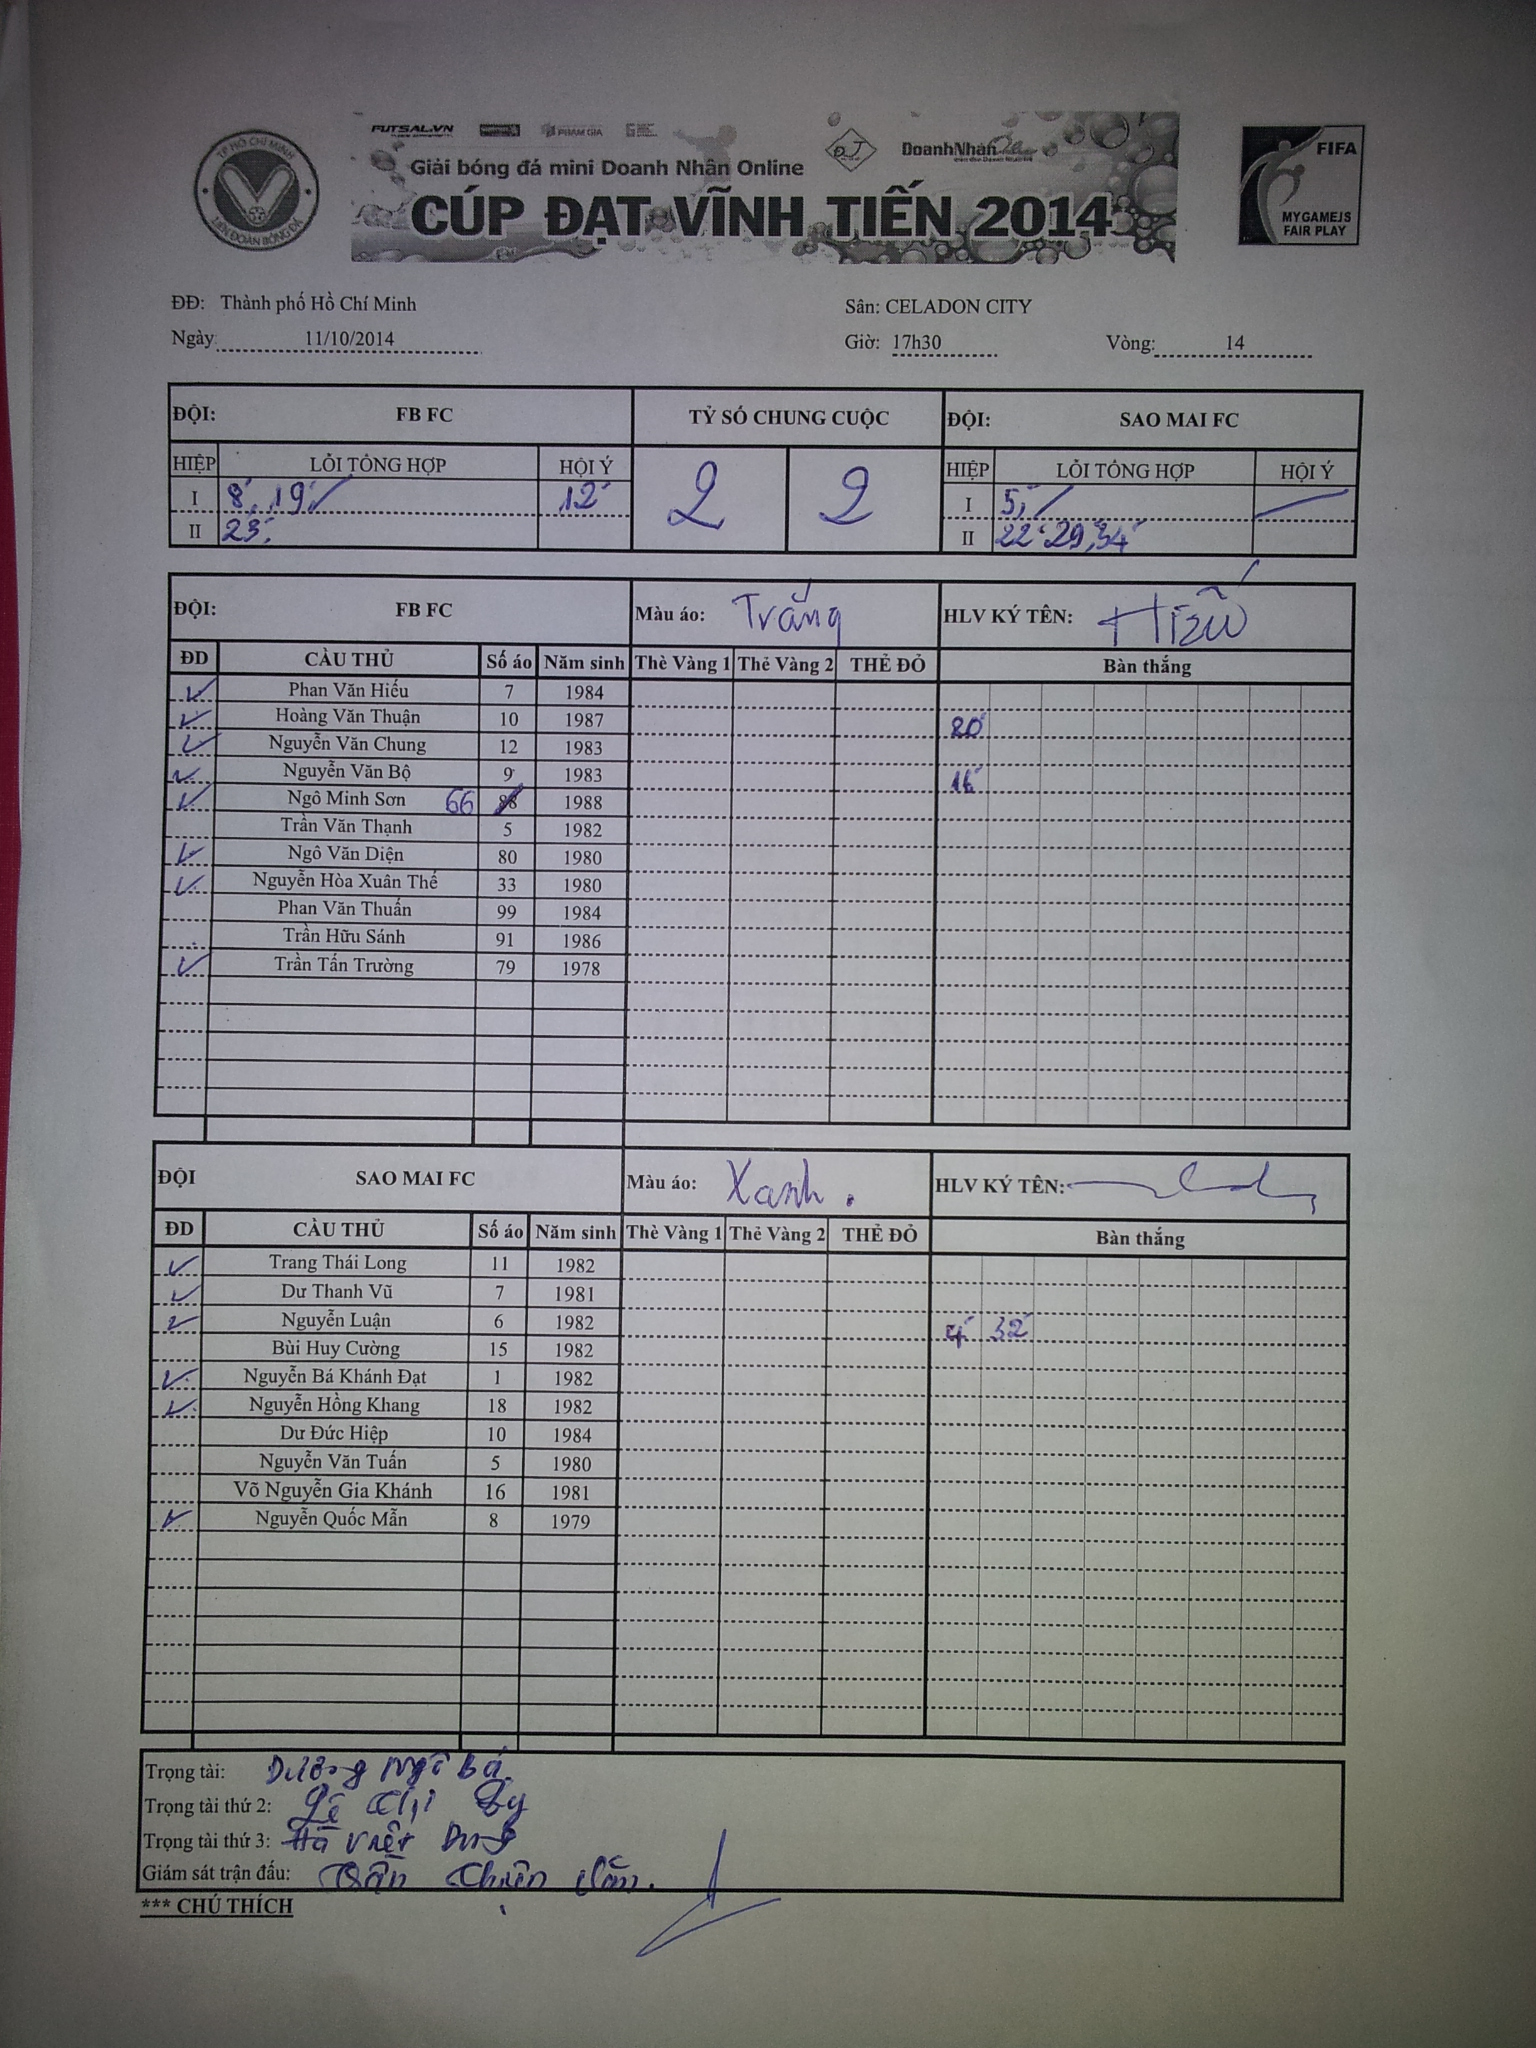 FUTSAL.VN PHAM GIA
TP HỒ CHÍ MINH
LIÊN ĐOÀN BÓNG ĐÁ
Giải bóng đá mini Doanh Nhân Online
ĐJ DoanhNhân
CÚP ĐẠT VĨNH TIẾN 2014
FIFA
MYGAMEIS
FAIR PLAY
ĐĐ: Thành phố Hồ Chí Minh Sân: CELADON CITY
Ngày 11/10/2014 Giờ: 17h30 Vòng: 14
ĐỘI: FB FC TỶ SỐ CHUNG CUỘC ĐỘI: SAO MAI FC
HIỆP LỖI TỔNG HỢP HỘI Ý 2 2 HIỆP LỖI TỔNG HỢP HỘI Ý
I 8, 19 12 I 5
II 23 II 22 29 34
ĐỘI: FB FC Màu áo: Trắng HLV KÝ TÊN: Hiếu
ĐD CẦU THỦ Số áo Năm sinh Thẻ Vàng 1 Thẻ Vàng 2 THẺ ĐỎ Bàn thắng
Phan Văn Hiếu 7 1984
Hoàng Văn Thuận 10 1987 20
Nguyễn Văn Chung 12 1983
Nguyễn Văn Bộ 9 1983 16
Ngô Minh Sơn 66 88 1988
Trần Văn Thạnh 5 1982
Ngô Văn Diện 80 1980
Nguyễn Hòa Xuân Thế 33 1980
Phan Văn Thuấn 99 1984
Trần Hữu Sánh 91 1986
Trần Tấn Trường 79 1978
ĐỘI SAO MAI FC Màu áo: Xanh. HLV KÝ TÊN:
ĐD CẦU THỦ Số áo Năm sinh Thẻ Vàng 1 Thẻ Vàng 2 THẺ ĐỎ Bàn thắng
Trang Thái Long 11 1982
Dư Thanh Vũ 7 1981
Nguyễn Luận 6 1982 4 32
Bùi Huy Cường 15 1982
Nguyễn Bá Khánh Đạt 1 1982
Nguyễn Hồng Khang 18 1982
Dư Đức Hiệp 10 1984
Nguyễn Văn Tuấn 5 1980
Võ Nguyễn Gia Khánh 16 1981
Nguyễn Quốc Mẫn 8 1979
Trọng tài: Dương Ngô Bá
Trọng tài thứ 2: Lê Chí
Trọng tài thứ 3: Hà Việt Dũng
Giám sát trận đấu: Trần Thiện
*** CHÚ THÍCH